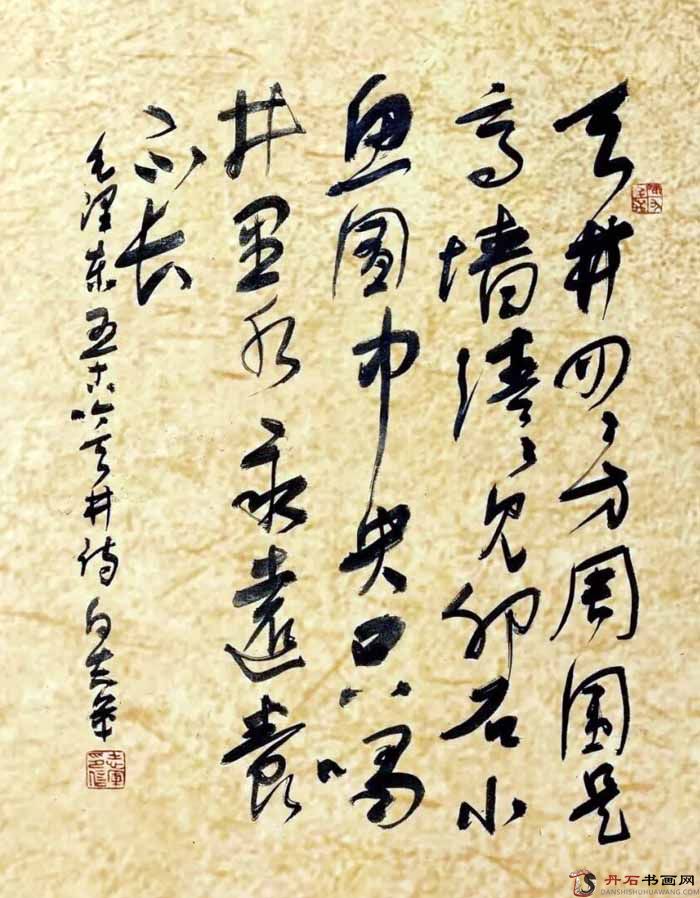 天井四〻方周围是
高墙清〻见卵石小
鱼囿中央只喝
井里水永遠養
不长
毛泽东五古吟天井诗 白志军
志军印信
丹石书画网
DANSHISHUHUAWANG.COM